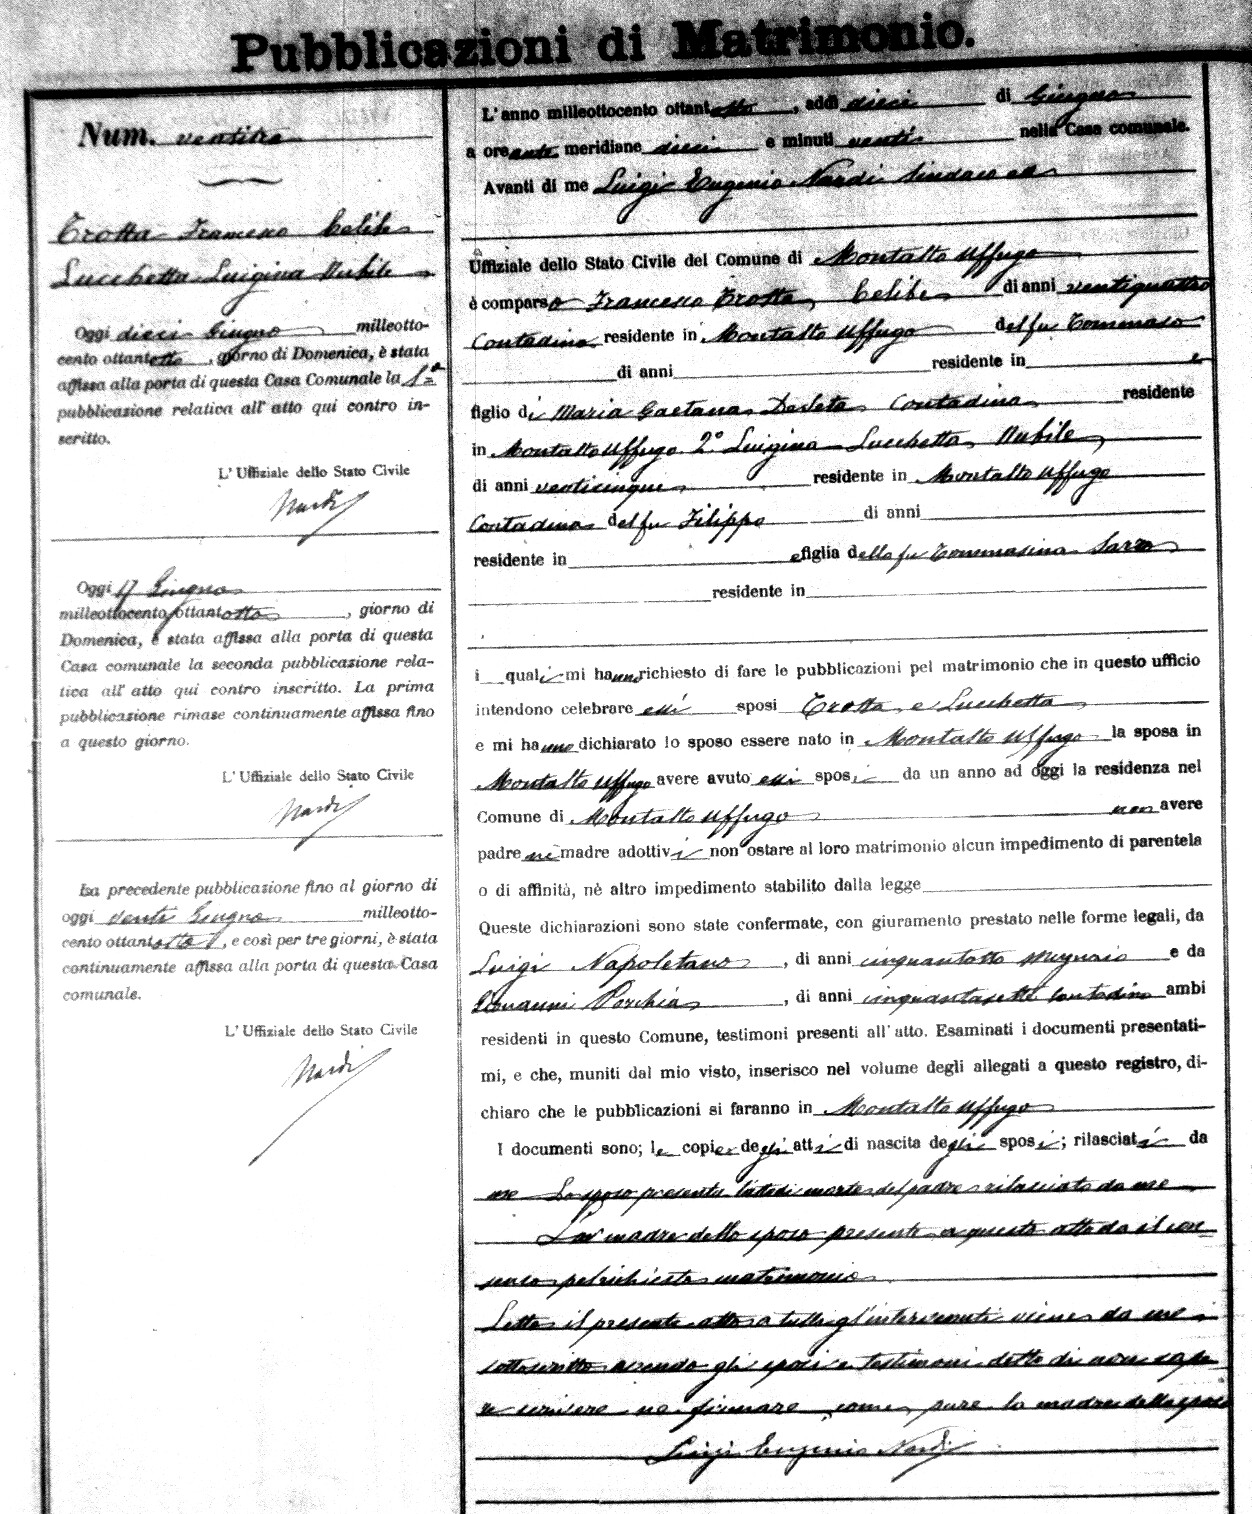 Pubblicazioni di Matrimonio.
Num. ventitre
Trotta Francesco Celibe
Lucchetta Luigina Nubile
Oggi dieci Giugno milleotto-
cento ottantotto, giorno di Domenica, è stata
affissa alla porta di questa Casa Comunale la 1ª
pubblicazione relativa all' atto qui contro in-
scritto.
L' Uffiziale dello Stato Civile
Nardi
Oggi 17 Giugno
milleottocento ottantotto, giorno di
Domenica, è stata affissa alla porta di questa
Casa comunale la seconda pubblicazione rela-
tica all' atto qui contro inscritto. La prima
pubblicazione rimase continuamente affissa fino
a questo giorno.
L' Uffiziale dello Stato Civile
Nardi
La precedente pubblicazione fino al giorno di
oggi venti Giugno milleotto-
cento ottantotto, e così per tre giorni, è stata
continuamente affissa alla porta di questa Casa
comunale.
L' Uffiziale dello Stato Civile
Nardi
L'anno milleottocento ottantotto, addì dieci di Giugno
a ore anti meridiane dieci e minuti venti nella Casa comunale.
Avanti di me Luigi Eugenio Nardi Sindaco ed
Uffiziale dello Stato Civile del Comune di Montalto Uffugo
è comparso Francesco Trotta, Celibe di anni ventiquattro
Contadino residente in Montalto Uffugo del fu Tommaso
di anni residente in e
figlio di Maria Gaetana Contadina residente
in Montalto Uffugo 2º Luigina Lucchetta, Nubile,
di anni venticinque residente in Montalto Uffugo
Contadina del fu Filippo di anni
residente in e figlia della fu Tommasina
residente in
i quali mi hanno richiesto di fare le pubblicazioni pel matrimonio che in questo ufficio
intendono celebrare essi sposi Trotta e Lucchetta
e mi hanno dichiarato lo sposo essere nato in Montalto Uffugo la sposa in
Montalto Uffugo avere avuto essi sposi da un anno ad oggi la residenza nel
Comune di Montalto Uffugo non avere
padre nè madre adottivi non ostare al loro matrimonio alcun impedimento di parentela
o di affinità, nè altro impedimento stabilito dalla legge
Queste dichiarazioni sono state confermate, con giuramento prestato nelle forme legali, da
Luigi Napoletano, di anni cinquantotto mugnaio e da
Giovanni Porchia, di anni cinquantasette contadino ambi
residenti in questo Comune, testimoni presenti all'atto. Esaminati i documenti presentati-
mi, e che, muniti dal mio visto, inserisco nel volume degli allegati a questo registro, di-
chiaro che le pubblicazioni si faranno in Montalto Uffugo
I documenti sono; le copie degli atti di nascita degli sposi; rilasciati da
me Lo sposo presenta l'atto di morte del padre rilasciato da me
La madre dello sposo presente a questo atto da il con
senso pel richiesto matrimonio
Letto il presente atto a tutti gl'intervenuti viene da me
sottoscritto avendo gli sposi e testimoni detto di non sape
re scrivere ne firmare come pure la madre dello sposo
Luigi Eugenio Nardi